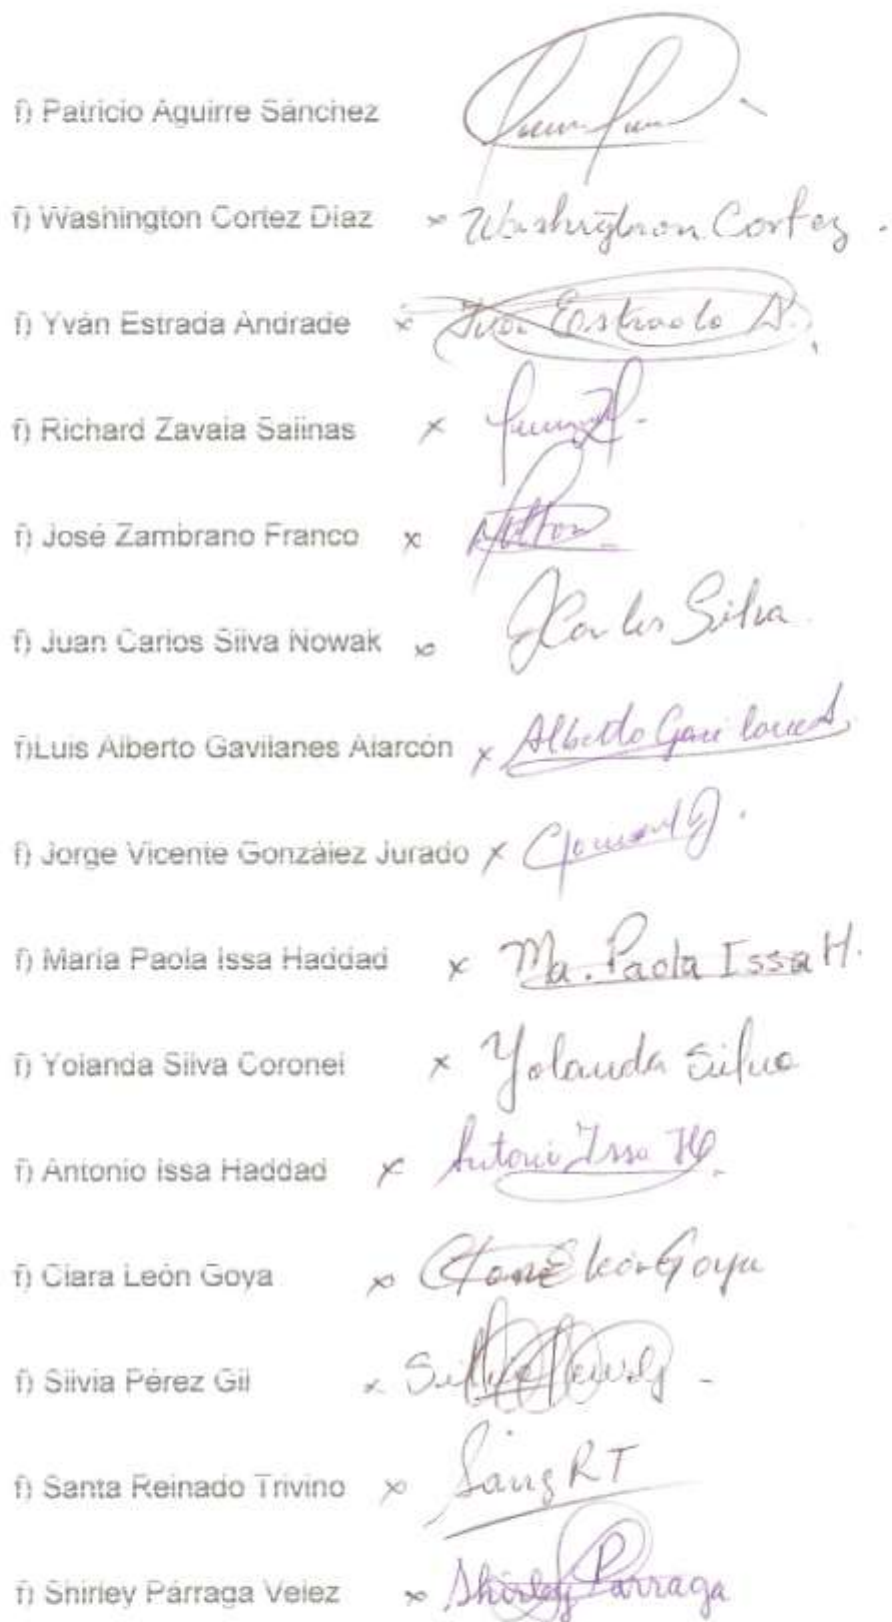 f) Patricio Aguirre Sánchez
f) Washington Cortez Díaz x Washington Cortez.
f) Yván Estrada Andrade x Ivan Estrada A.
f) Richard Zavala Salinas x
f) José Zambrano Franco x
f) Juan Carlos Silva Nowak x JCarlos Silva
f)Luis Alberto Gavilanes Alarcón x Alberto Gavilanes A.
f) Jorge Vicente González Jurado x
f) María Paola Issa Haddad x Ma. Paola Issa H.
f) Yolanda Silva Coronel x Yolanda Silva
f) Antonio Issa Haddad x Antonio Issa H.
f) Clara León Goya x Clara León Goya
f) Silvia Pérez Gil x Silvia
f) Santa Reinado Trivino x RT
f) Shirley Párraga Velez x Shirley Parraga